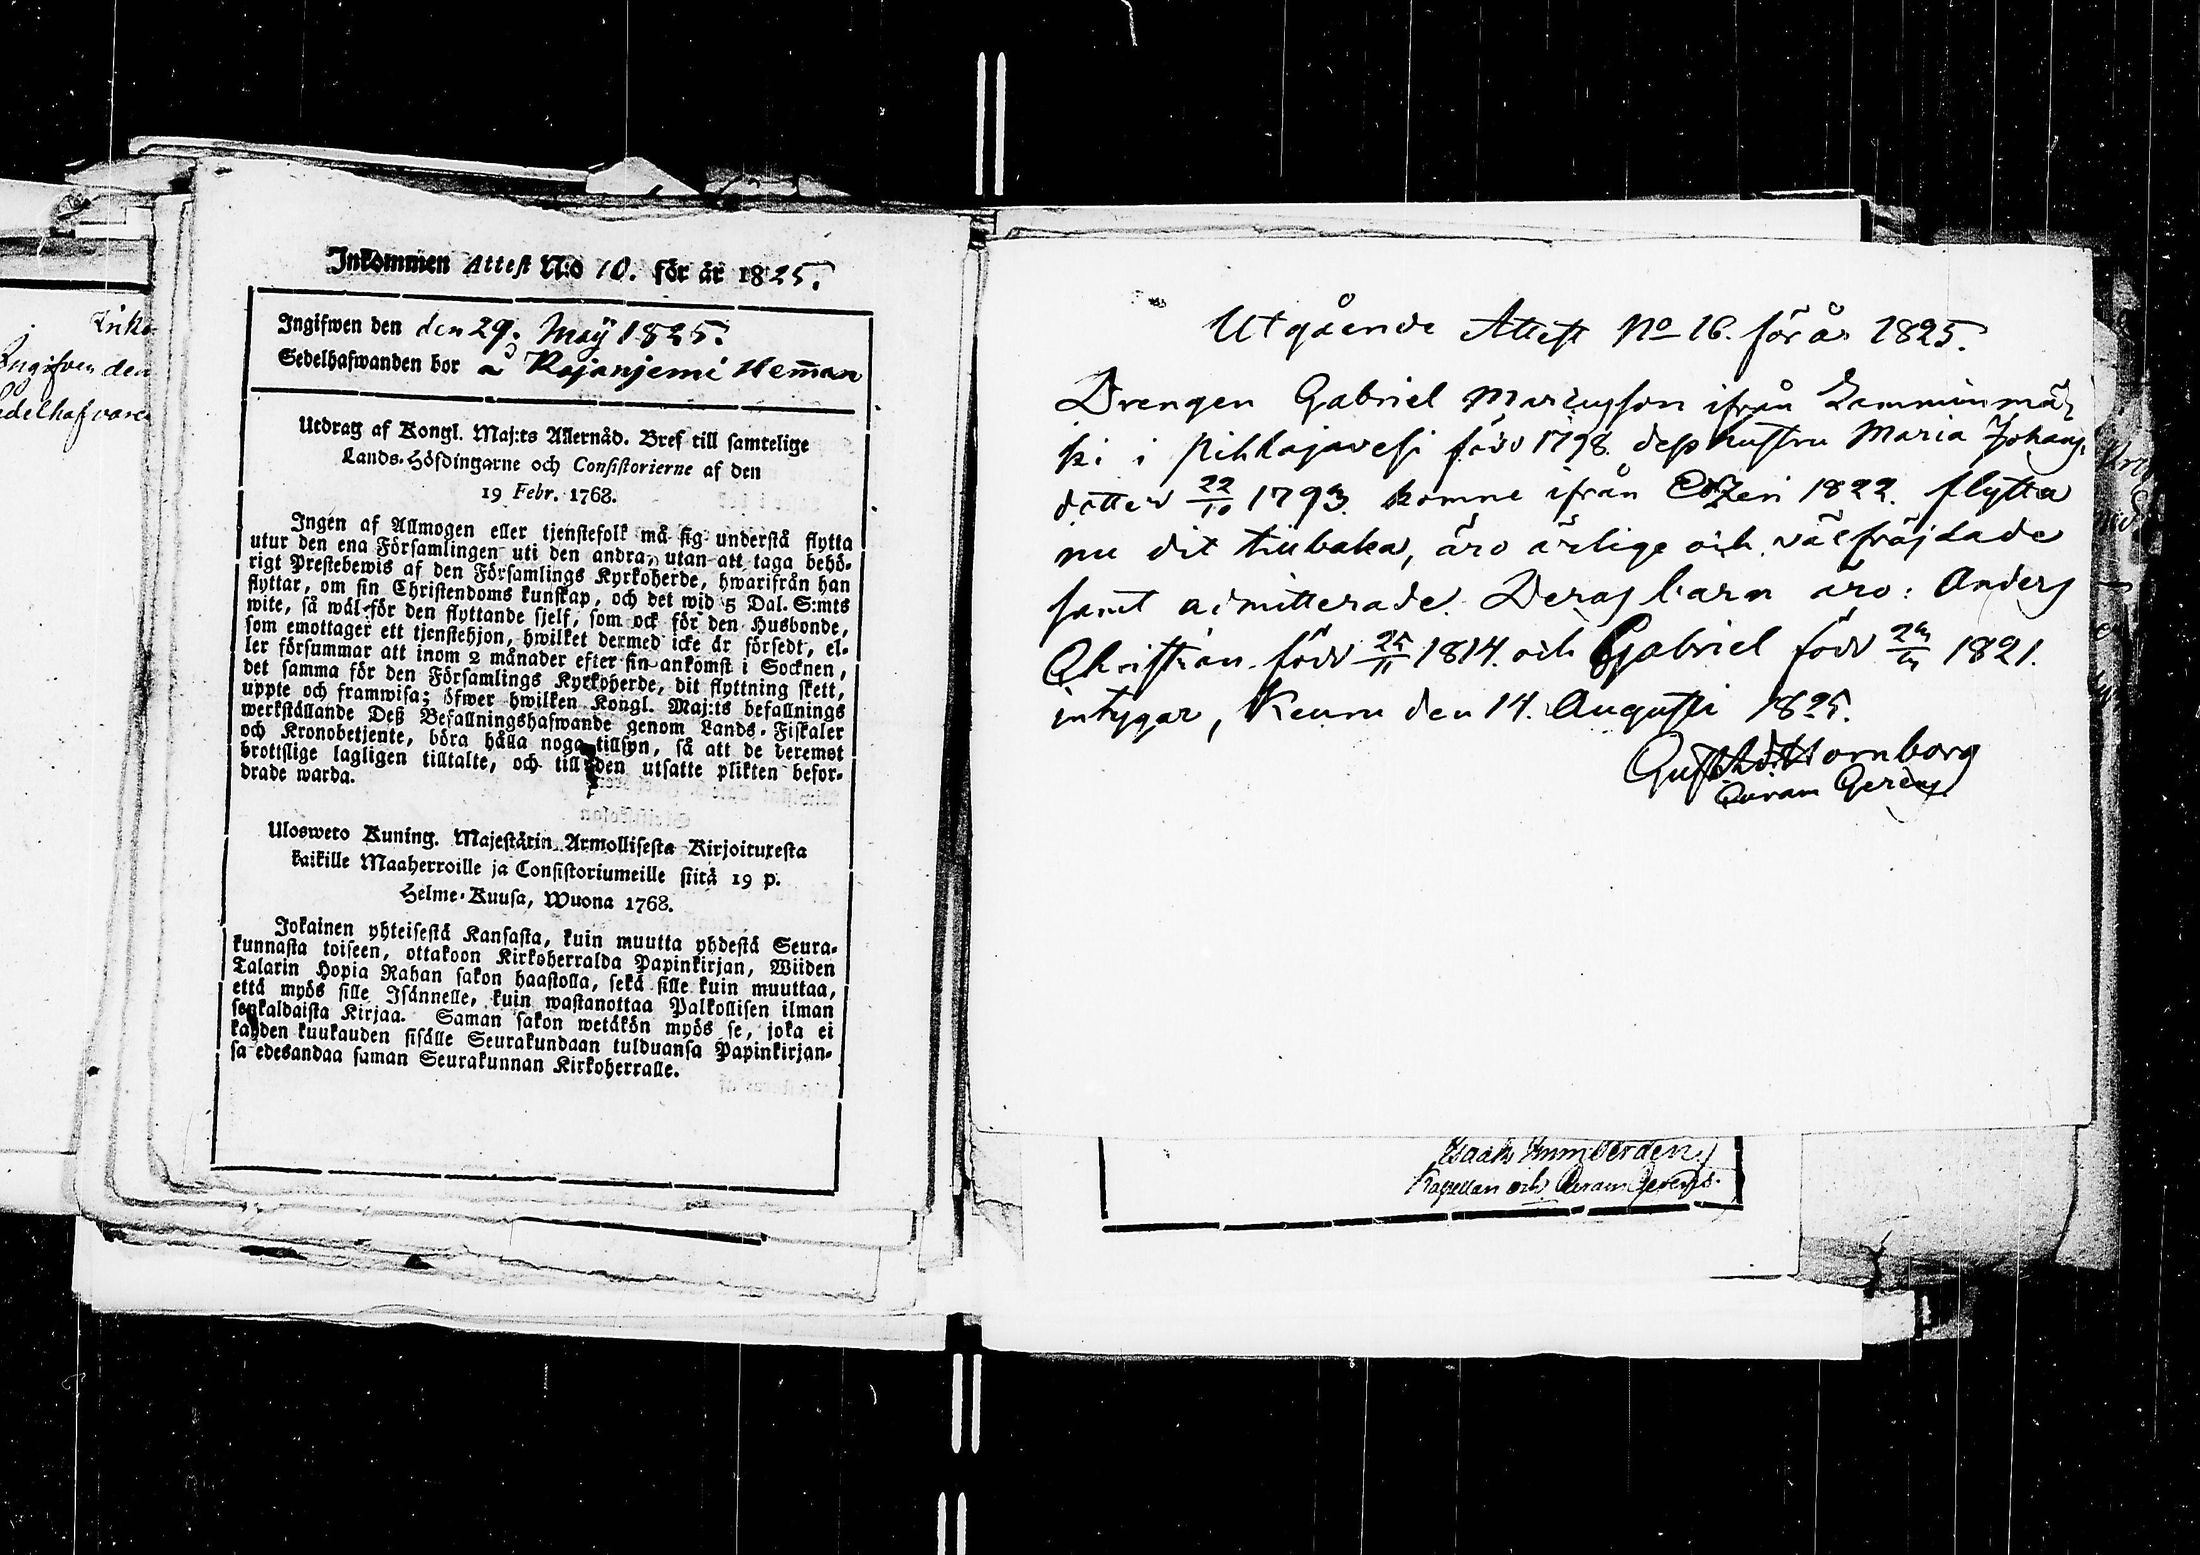 Inko-
Ingifven den
edelhafvare
Inkommen Attest N:o 10. för år 1825.
Ingifwen den den 29. Maÿ 1825.
Sedelhafwanden bor å Rajanjemi Hem̄an
Utdrag af Kongl. Maj:ts Allernåd. Bref till samtelige
Lands-Höfdingarne och Consistorierne af den
19 Febr. 1768.
Ingen af Allmogen eller tjenstefolk må sig understå flytta
utur den ena Församlingen uti den andra, utan att taga behö-
rigt Prestebewis af den Församlings Kyrkoherde, hwarifrån han
flyttar, om sin Christendoms kunskap, och det wid 5 Dal. S:mts
wite, så wäl för den flyttande sjelf, som ock för den Husbonde,
som emottager ett tjenstehjon, hwilket dermed icke är försedt, el-
ler försummar att inom 2 månader efter sin ankomst i Socknen,
det samma för den Församlings Kyrkoherde, dit flyttning skett,
uppte och framwisa; öfwer hwilken Kongl. Maj:ts befallnings
werkställande Deß Befallningshafwande genom Lands-Fiskaler
och Kronobetjente, böra hålla noga tillsyn, så att de deremot
brottslige lagligen tilltalte, och till den utsatte plikten befor-
drade warda.
Ulosweto Kuning. Majestätin Armollisesta Kirjoituxesta
kaikille Maaherroille ja Consistoriumeille siitä 19 p.
Helme-Kuusa, Wuona 1768.
Jokainen yhteisestä Kansasta, kuin muutta yhdestä Seura-
kunnasta toiseen, ottakoon Kirkoherralda Papinkirjan, Wiiden
Talarin Hopia Rahan sakon haastolla, sekä sille kuin muuttaa,
että myös sille Isännelle, kuin wastanottaa Palkollisen ilman
senkaldaista Kirjaa. Saman sakon wetäkön myös se, joka ei
kahden kuukauden sisälle Seurakundaan tulduansa Papinkirjan-
sa edesandaa saman Seurakunnan Kirkoherralle.
Utgående Attest No 16. för år 1825.
Drengen Gabriel Marcusson ifrån Lamminmäz
ki i Pihlajavesi född 1798. dess hustru Maria Johans
dotter 22/10 1793. komne ifrån Etzeri 1822. flytta
nu dit tilbaka, äro ärlige och välfräjdade
samt admitterade. Deras barn äro: Anders
Christian född 25/11 1814. och Gabriel född 1821.
intygar, Keuru den 14. Augusti 1825.
Gust. Hornborg
Curam Gerens
Kapellan och Curam Gerens.